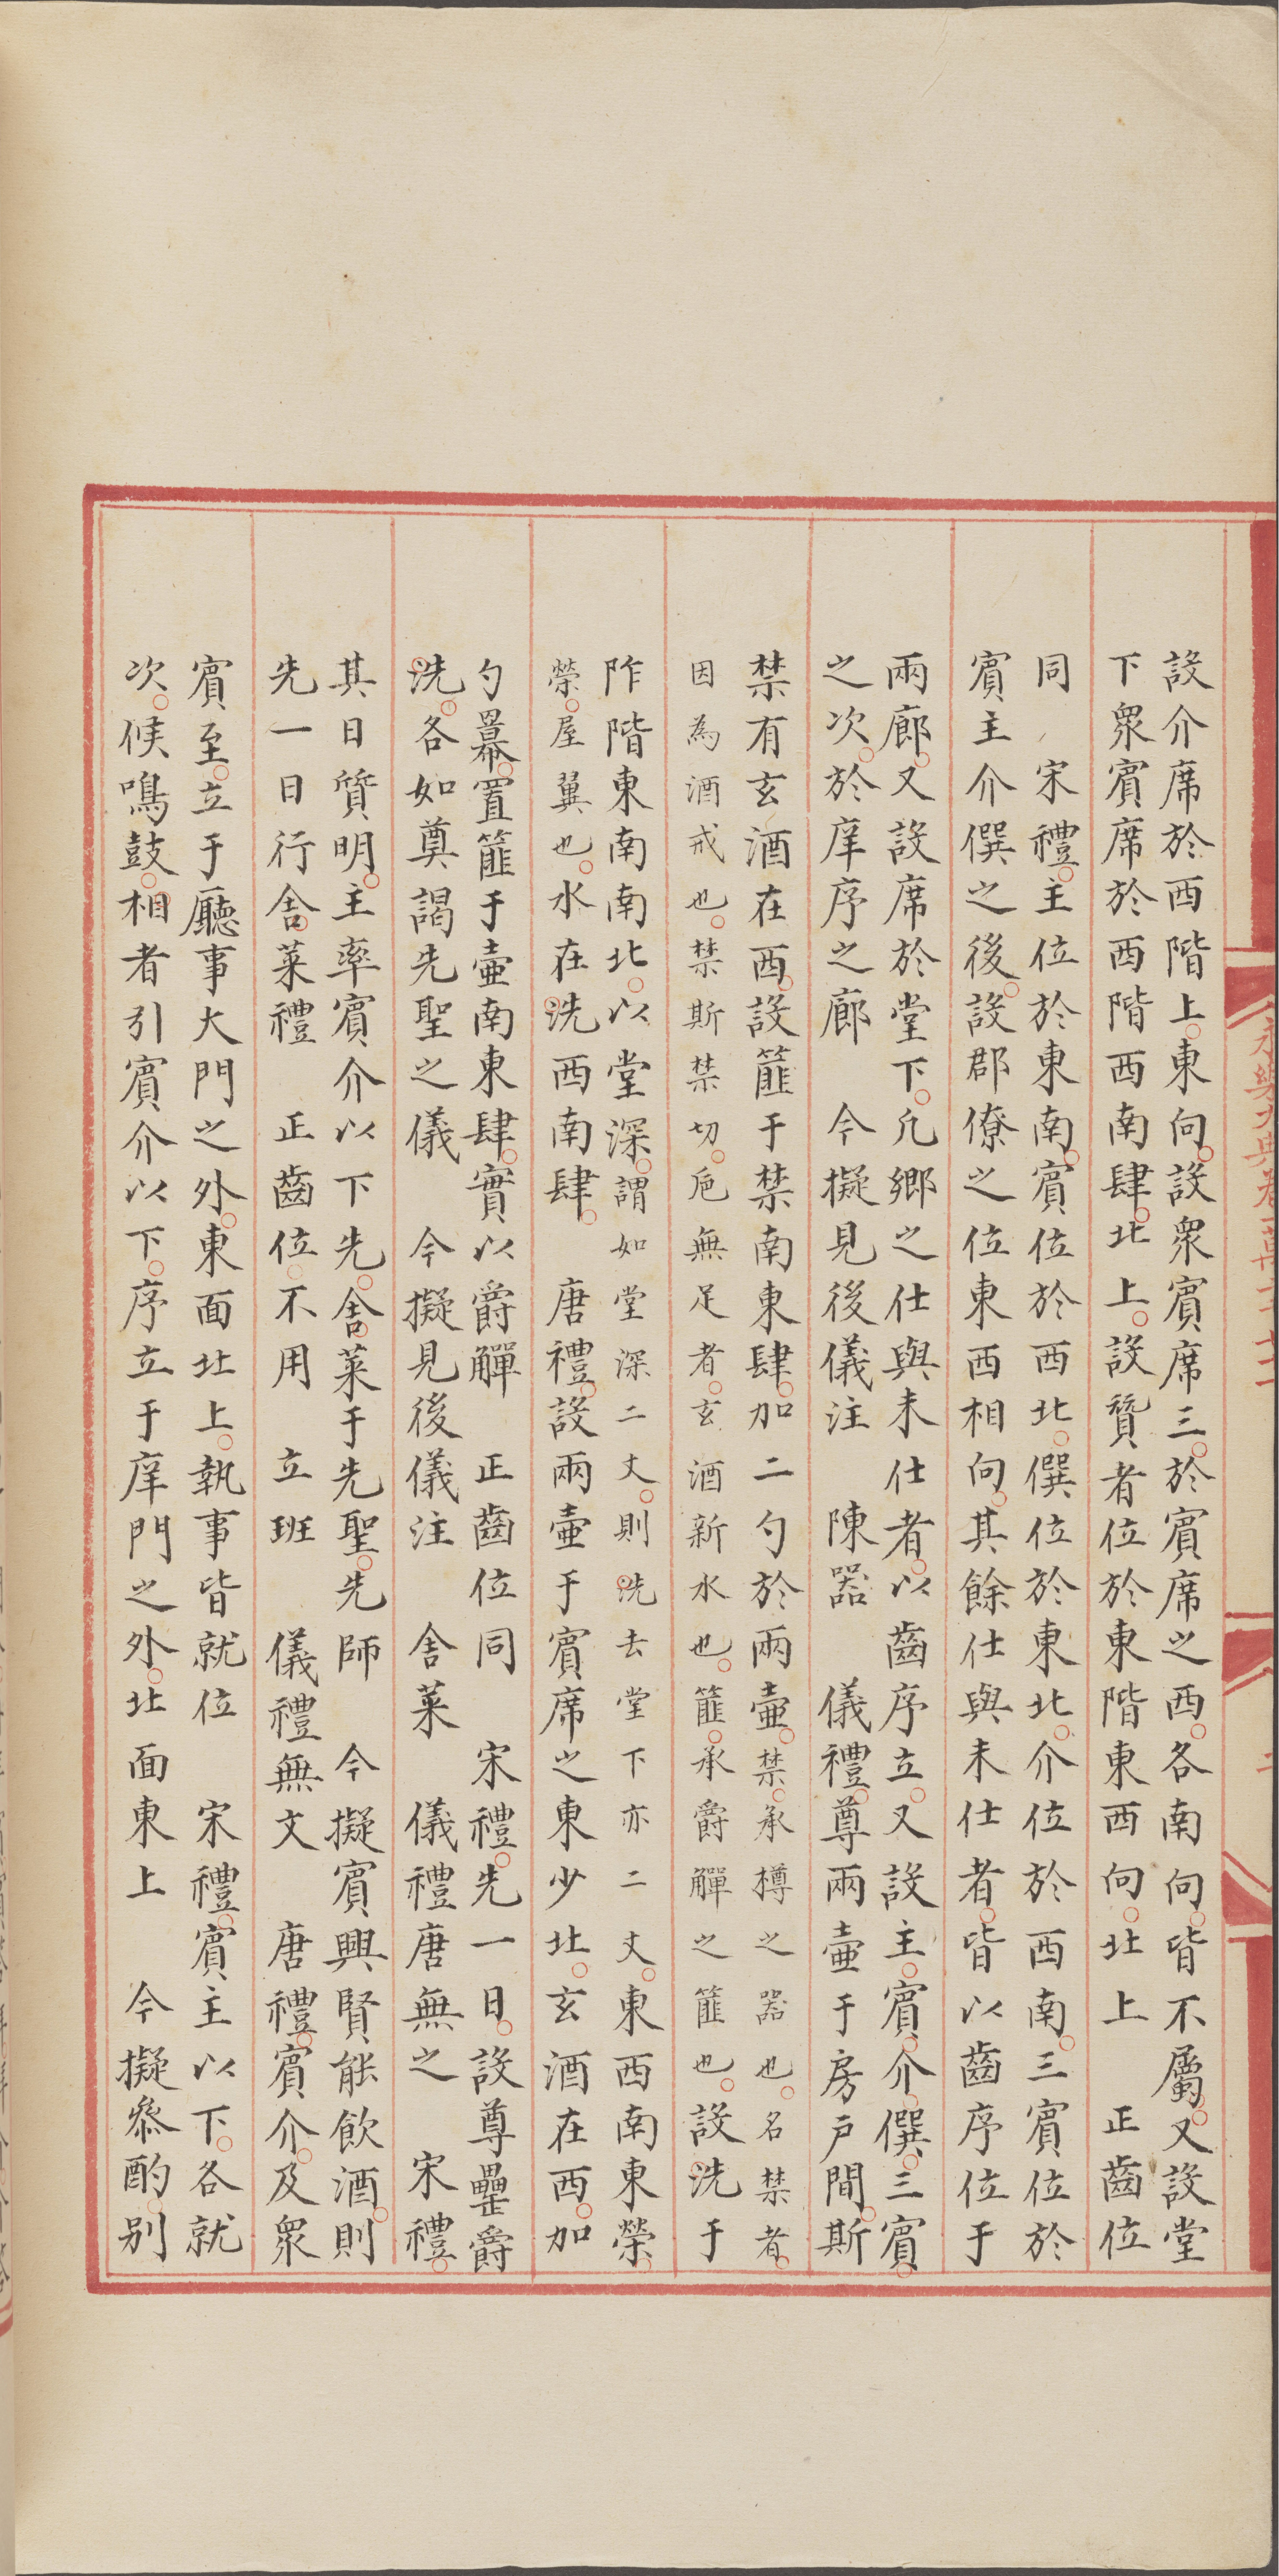 設介席於西階上東向設衆賓席三於賓席之西各南向皆不屬又設堂
下衆賓席於西階西南肆北上設贊者位於東階東西向北上　正齒位
同　宋禮主位於東南賓位於西北僎位於東北介位於西南三賓位於
賓主介僎之後設郡僚之位東西相向其餘仕與未仕者皆以齒序位于
兩廊又設席於堂下凡鄉之仕與未仕者以齒序立又設主賓介僎三賓
之次於庠序之廊　今擬見後儀注　陳器　儀禮尊兩壷于房戶間斯
禁有玄酒在西設篚于禁南東肆加二勺於兩壷禁承樽之器也名禁者
因為酒戒也禁斯禁切巵無足者玄酒新水也篚承爵觶之篚也設洗于
阼階東南南北以堂深謂如堂深二丈則洗去堂下亦二丈東西南東榮
榮屋翼也水在洗西南肆　唐禮設兩壷于賓席之東少北玄酒在西加
勺冪置篚于壷南東肆實以爵觶　正齒位同　宋禮先一日設尊罍爵
洗各如奠謁先聖之儀　今擬見後儀注　舍菜　儀禮唐無之　宋禮
其日質明主率賓介以下先舍菜于先聖先師　今擬賓興賢能飲酒則
先一日行舍菜禮　正齒位不用　立班　儀禮無文　唐禮賓介及衆
賓至立于廳事大門之外東面北上執事皆就位　宋禮賓主以下各就
次候鳴鼓相者引賓介以下序立于庠門之外北面東上　今擬叅酌別
永樂大典卷一萬